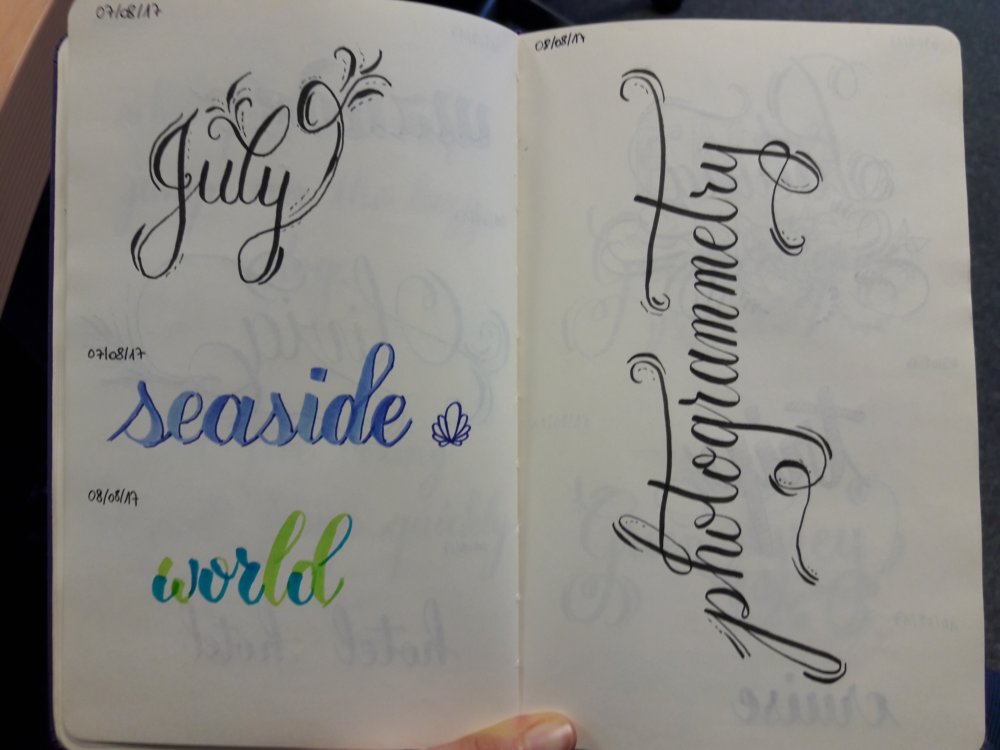 07/08/17
July
07/08/17
seaside
08/08/17
world
08/08/17
photogrammetry
hotel hotel
cruise